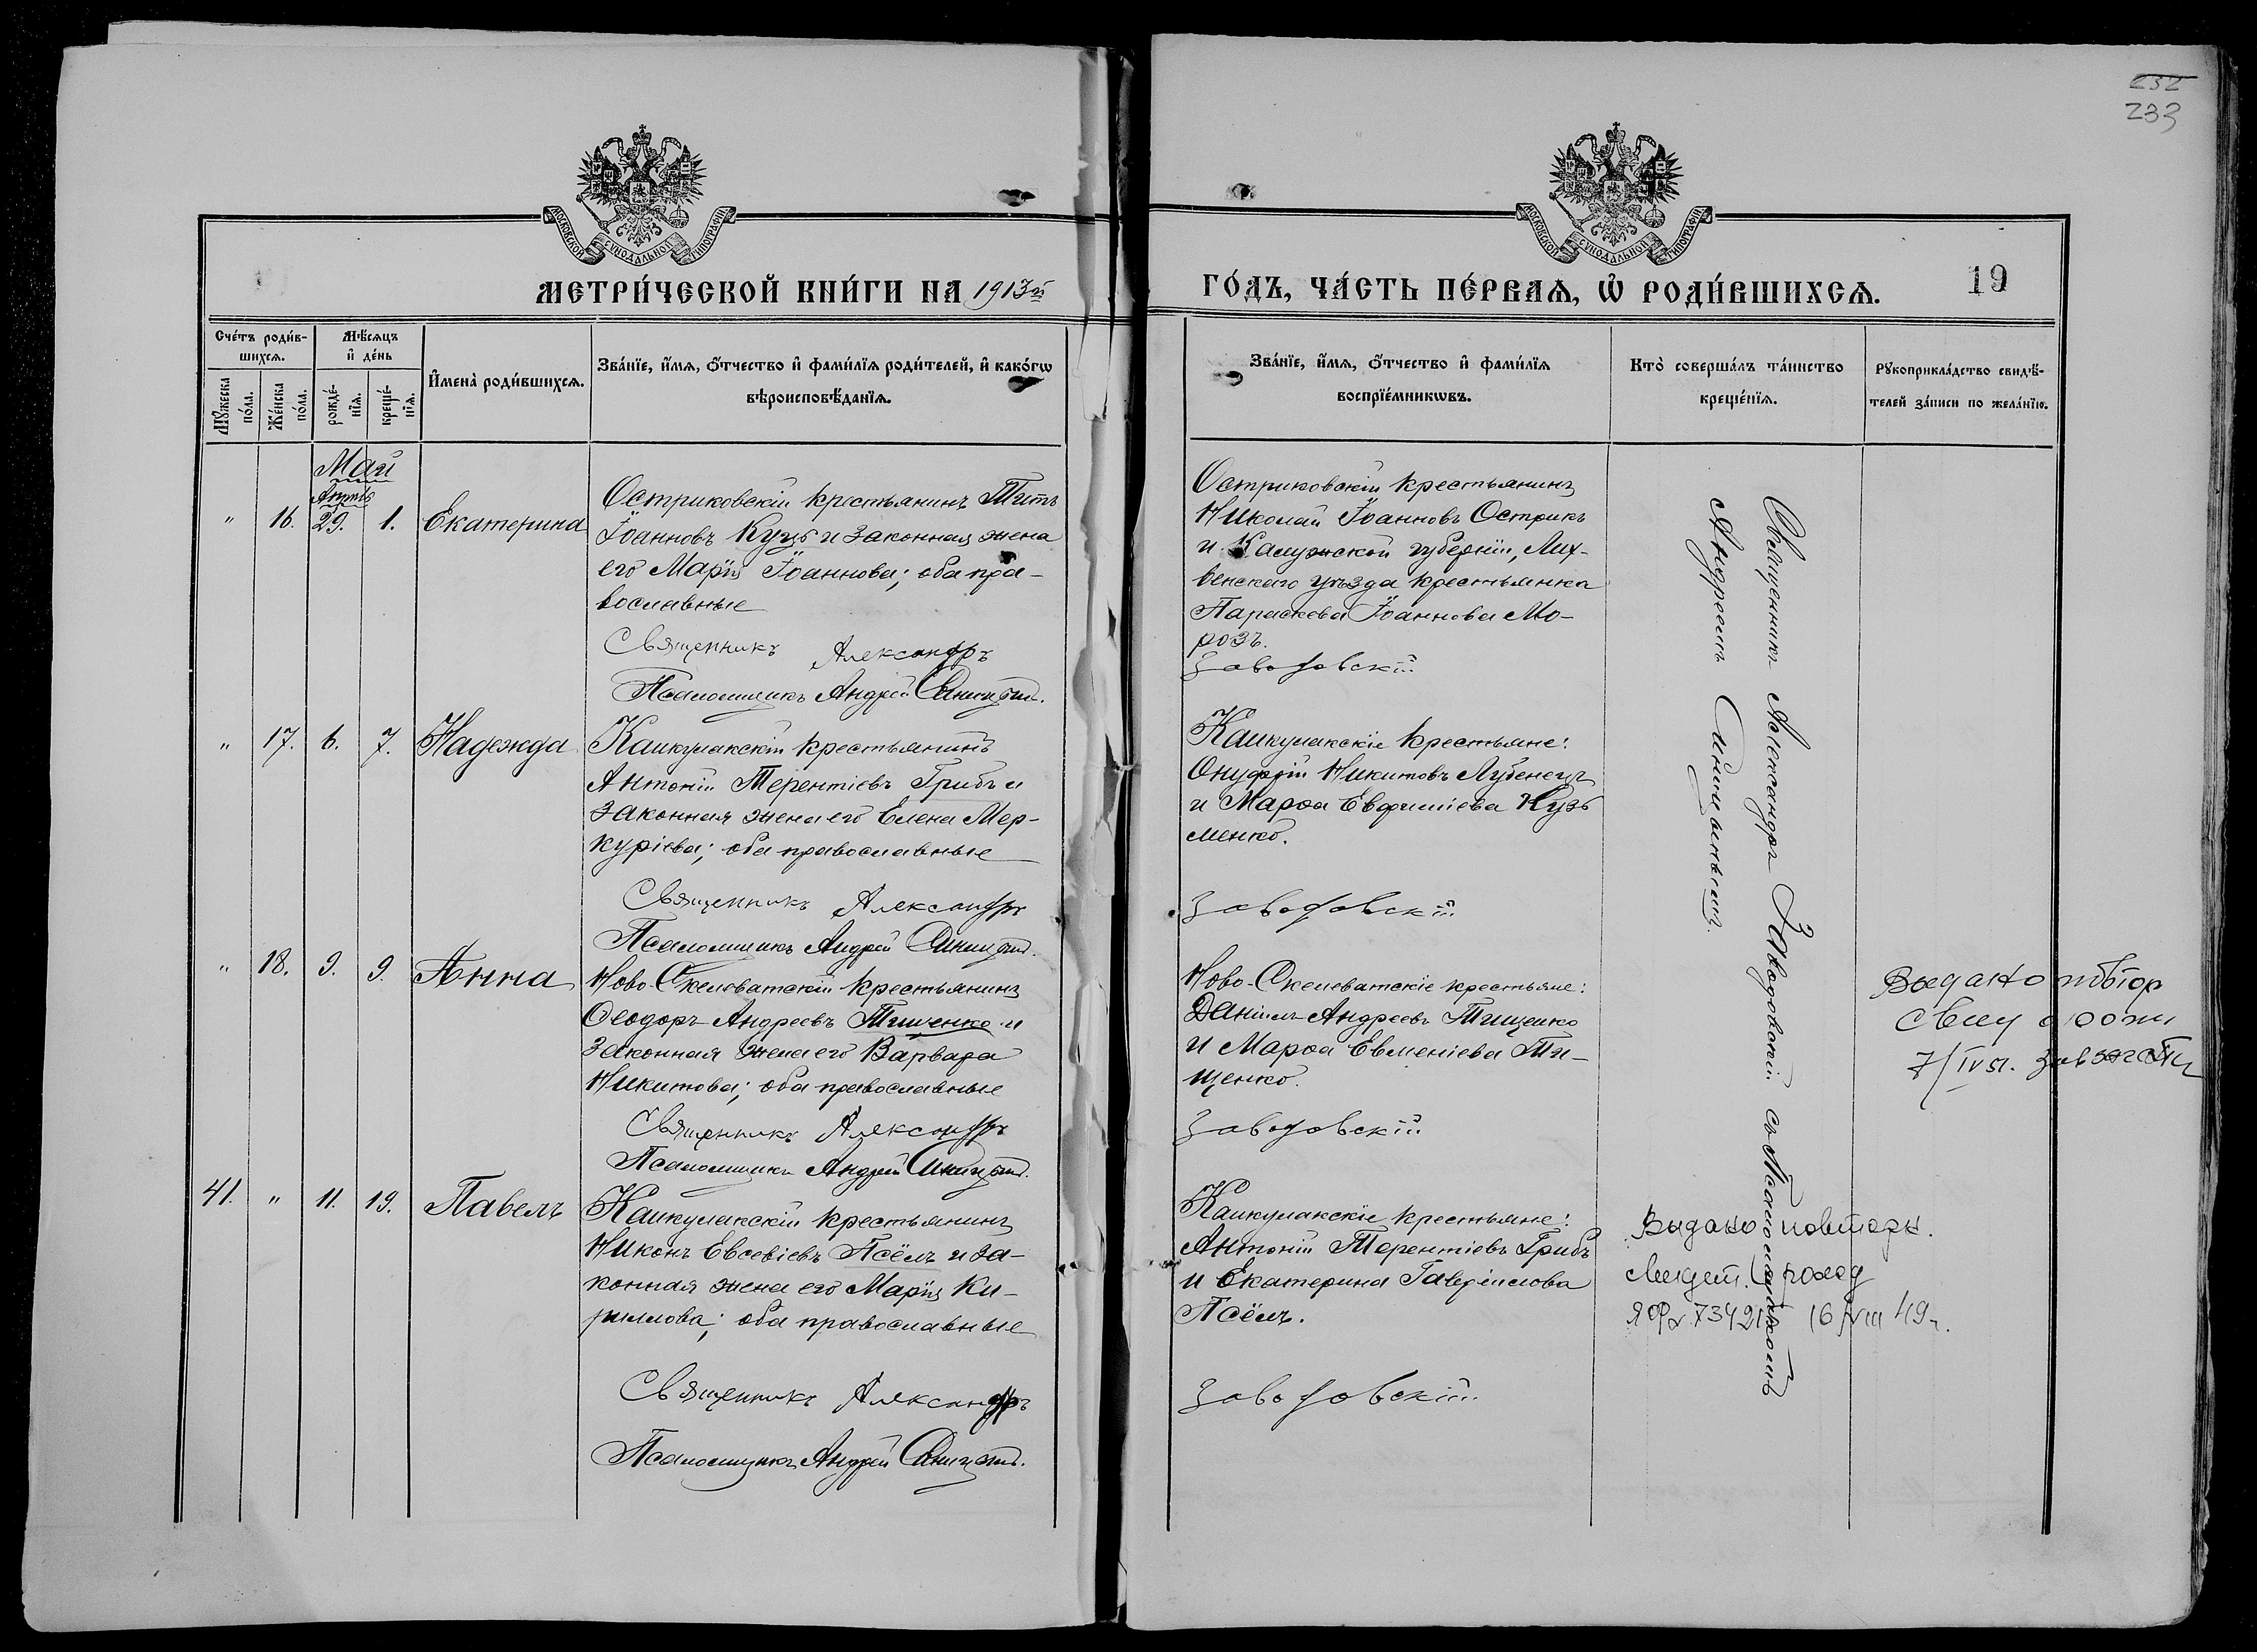 232
233
МОСКОВСКОЙ СѴНОДАЛЬНОЙ ТИПОГРАФІИ
МОСКОВСКОЙ СѴНОДАЛЬНОЙ ТИПОГРАФІИ
МЕТРИ́ЧЕСКОЙ КНИ́ГИ НА 1913й
ГО́ДЪ, ЧА́СТЬ ПЕ́РВАѦ, Ѡ҆ РОДИ́ВШИХСѦ.
19
Сче́тъ роди́в-
шихсѧ.
Мꙋ́жеска
по́ла.
Же́нска
по́ла.
Мѣ́сѧцъ
и҆ де́нь
рожде́-
нїѧ.
креще́-
нїѧ.
И҆мена̀ роди́вшихсѧ.
Зва́нїе, и҆́мѧ, ѻ҆́тчество и҆ фами́лїѧ роди́телей, и҆ како́гѡ
вѣроисповѣ́данїѧ.
Зва́нїе, и҆́мѧ, ѻ҆́тчество и҆ фами́лїѧ
воспрїе́мникѡвъ.
Кто̀ соверша́лъ та́инство
креще́нїѧ.
Рꙋкоприкла́дство свидѣ́-
телей за́писи по жела́нїю.
Май
" 16. 29. 1. Екатерина
Остриковскій крестьянинъ Титъ
Іоанновъ Куцъ и законная жена
его Марія Іоаннова; оба пра-
вославные
Священникъ Александръ
Псаломщикъ Андрей
Остриковскій крестьянинъ
Николай Іоанновъ Острикъ
и Калужской губерніи, Лих-
венскаго уѣзда крестьянка
Параскева Іоаннова Мо-
розъ.
Заводовскій
" 17. 6. 7. Надежда
Канкулакскій крестьянинъ
Антоній Терентіевъ Грибъ и
законная жена его Елена Мер-
куріева; оба православные
Священникъ Александръ
Псаломщикъ Андрей
Канкулакскіе крестьяне:
Онуфрій Никитовъ Лубенецъ
и Марѳа Евфиміева Кузь
менко.
Заводовскій
" 18. 9. 9. Анна
Ново-Скелеватскій крестьянинъ
Ѳеодоръ Андреевъ Тищенко и
законная жена его Варвара
Никитова; оба православные
Священникъ Александръ
Псаломщикъ Андрей
Ново-Скелеватскіе крестьяне:
Даніилъ Андреевъ Тищенко
и Марѳа Евменіева Ти-
щенко.
Заводовскій
41. " 11. 19. Павелъ
Канкулакскій крестьянинъ
Никонъ Евсевіевъ Псёлъ и за-
конная жена его Марія Ки-
риллова; оба православные
Священникъ Александръ
Псаломщикъ Андрей
Канкулакскіе крестьяне:
Антоній Терентіевъ Грибъ
и Екатерина Гавріилова
Псёлъ.
Заводовскій
Священникъ Александръ Заводовскій съ Псаломщикомъ
Андреемъ
Видано повторн.